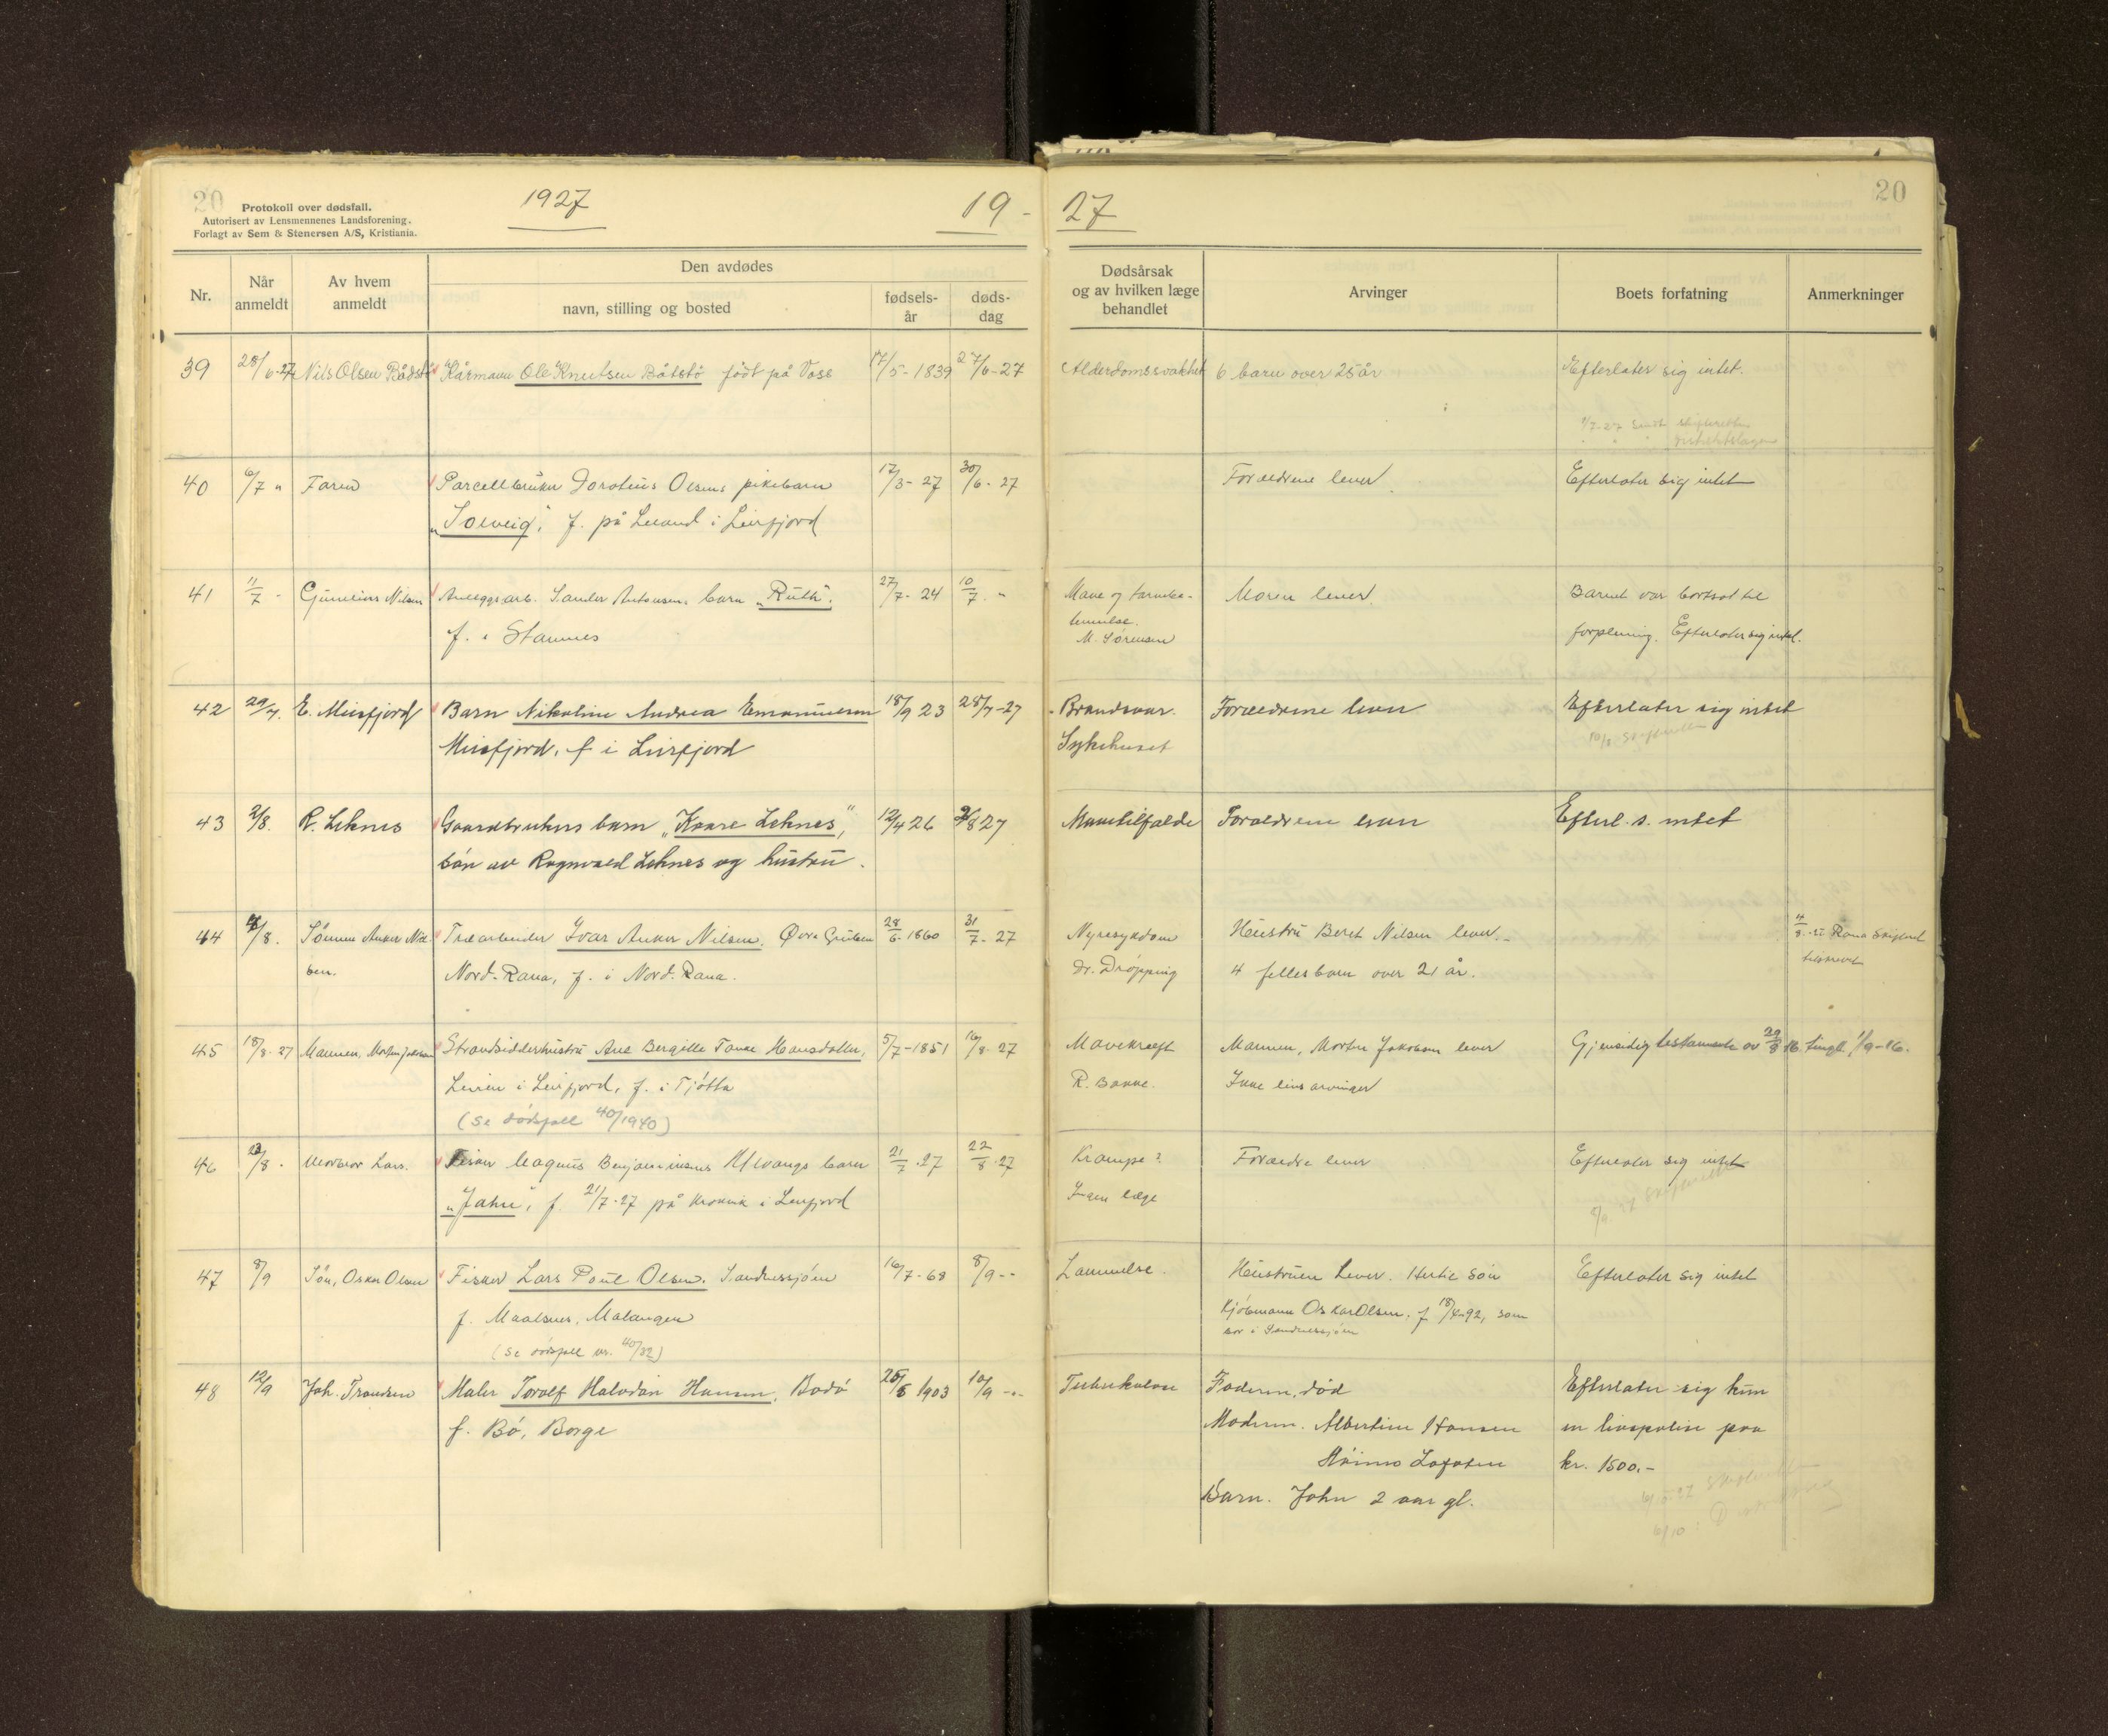 20
Protokoll over dødsfall.
Autorisert av Lensmennenes Landsforening.
Forlagt av Sem & Stenersen A/S, Kristiania.
1927
19 - 27
20
Nr.
Når anmeldt
Av hvem anmeldt
Den avdødes
navn, stilling og bosted
fødsels-år
døds-dag
Dødsårsak og av hvilken læge behandlet
Arvinger
Boets forfatning
Anmerkninger
39 28/6-27 Nils Olsen Båtstø Kårmann Ole Knutsen Båtstø født på 17/5-1839 27/6-27 Alderdomssvakhet 6 barn over 25 år Efterlater sig intet.
40 6/7 " Faren Parcellbruker Doroteus Olsens pikebarn 17/3-27 30/6-27 Forældrene lever Efterlater sig intet
"Solveig", f. på Leland i Leirfjord
41 11/7 - Nilsen Anleggsarb. Sander Antonsens barn "Ruth". 27/7-24 10/7 - " Mave og tarmbe- Moren lever. Barnet var bortsat til
f. i Stamnes
tennelse.
M. Sørensen
forpleining. Efterlater sig intet.
42 29/7. E. Meisfjord Barn Nikoline Andrea Emanuelsen 18/9 23 28/7-27 Brandsaar. Forældrene lever Efterlater sig intet
Meisfjord, f i Leirfjord
Sykehuset
10/8 Skifteretten
43 2/8. R. Leknes Gaardbrukers barn "Kaare Leknes", 12/4 26 27 Forældrene lever Efterl. s. intet
søn av Ragnvald Leknes og hustru.
44 /8. Sønnen Anker Niel- Træarbeider Ivar Anker Nilsen. Øvre Gruben 28/6-1860 31/7-27 Nyresykdom Heustru Beret Nilsen lever. 4/8-27 Rana Skifteret
sen.
Nord-Rana, f. i Nord-Rana.
dr. Drøpping
4 felles barn over 21 år.
tilskrevet
45 18/8-27 Mannen, Morten Jakobsen Strandsidderhustru Ane Bergitte Tomine Hansdatter, 5/7-1851 16/8-27 Mavekræft Mannen, Morten Jakobsen lever Gjensidig testamente av 29/8 16 tingl. 1/9-16.
Leiren i Leirfjord, f. i Tjøtta
R. Bakke.
Ikke livsarvinger
(Se dødsfall 40/1940)
46 /8 - Morbror Lars. Fisker Magnus Benjaminsens Ulvangs barn 21/7-27 22/8-27 Krampe? Forældre lever Efterlater sig intet
"Jahn", f. 21/7-27 på Krokvik i Leirfjord
Ingen læge
47 8/9 Søn, Oskar Olsen Fisker Lars Poul Olsen. Sandnessjøen 16/7-68 8/9-- Lammelse. Heustruen lever. Hertil søn Efterlater sig intet
f. Maalsnes, Malangen
Kjøbmann Oskar Olsen. f 18/4-92, som
bor i Sandnessjøen
(Se dødsfall nr. 40/32)
48 12/9 Joh. Trondsen Maler Toralf Halvdan Hansen, Bodø 25/5 1903 10/9 -"- Tuberkulose Faderen, død Efterlater sig kun
f. Bø, Borge
Moderen. Albertine Hansen en livspolise paa
Lofoten kr. 1500.-
Barn. John 2 aar gl.